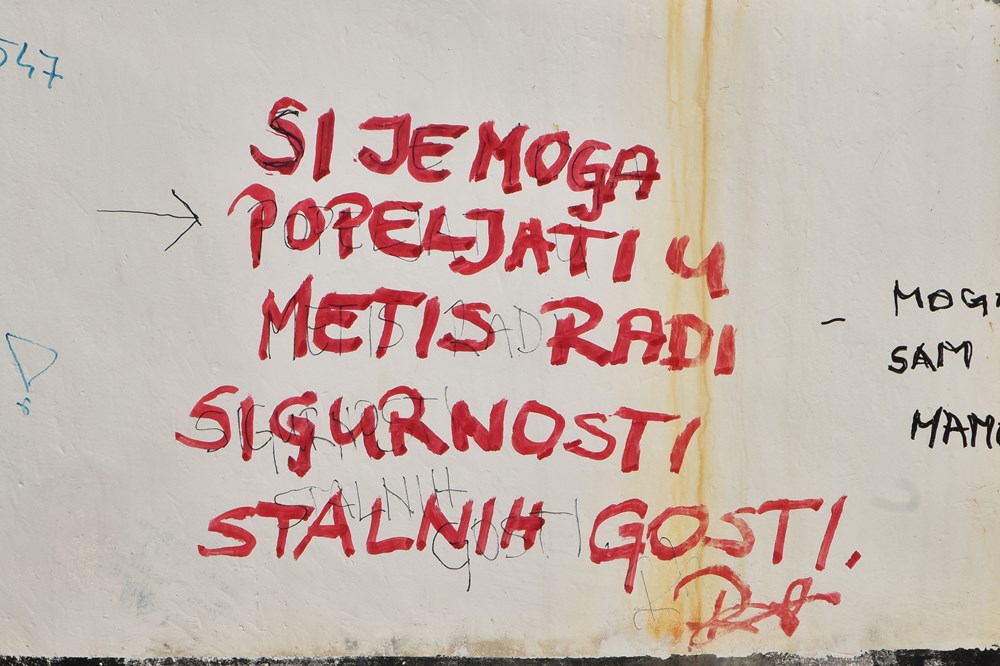 547
SI JE MOGA
POPELJATI U
METIS RADI
SIGURNOSTI
STALNIH GOSTI.
- MOG
SAM
MAM